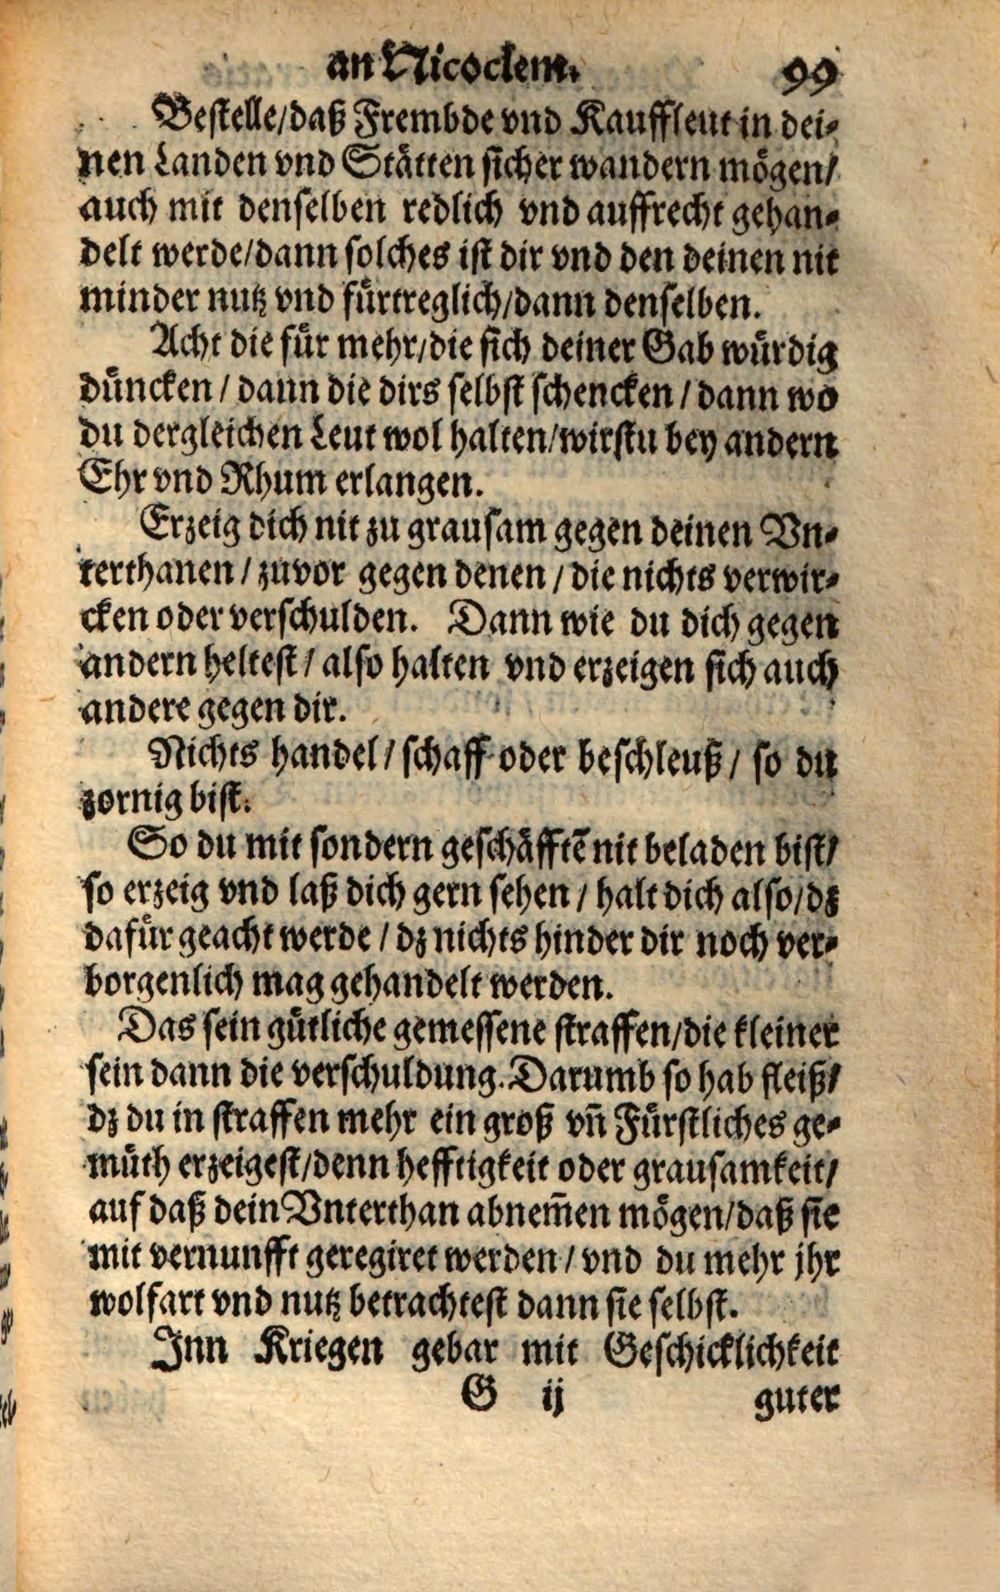 an Nicoclem. 99
Bestelle/daß Frembde vnd Kauffleut in dei-
nen Landen vnd Stätten sicher wandern mögen/
auch mit denselben redlich vnd auffrecht gehan-
delt werde/dann solches ist dir vnd den deinen nit
minder nutz vnd fürtreglich/dann denselben.
Acht die für mehr/die sich deiner Gab würdig
düncken / dann die dirs selbst schencken / dann wo
du dergleichen Leut wol halten/wirstu bey andern
Ehr vnd Rhum erlangen.
Erzeig dich nit zu grausam gegen deinen Vn-
terthanen / zuvor gegen denen / die nichts verwir-
cken oder verschulden. Dann wie du dich gegen
andern heltest / also halten vnd erzeigen sich auch
andere gegen dir.
Nichts handel / schaff oder beschleuß / so du
zornig bist.
So du mit sondern geschäfftē nit beladen bist/
so erzeig vnd laß dich gern sehen / halt dich also/dz
dafür geacht werde / dz nichts hinder dir noch ver-
borgenlich mag gehandelt werden.
Das sein gütliche gemessene straffen/die kleiner
sein dann die verschuldung. Darumb so hab fleiß/
dz du in straffen mehr ein groß vñ Fürstliches ge-
müth erzeigest/denn hefftigkeit oder grausamkeit/
auf daß dein Vnterthan abnem̄en mögen/daß sie
mit vernunfft geregiret werden / vnd du mehr jhr
wolfart vnd nutz betrachtest dann sie selbst.
Inn Kriegen gebar mit Geschicklichkeit
G ij guter